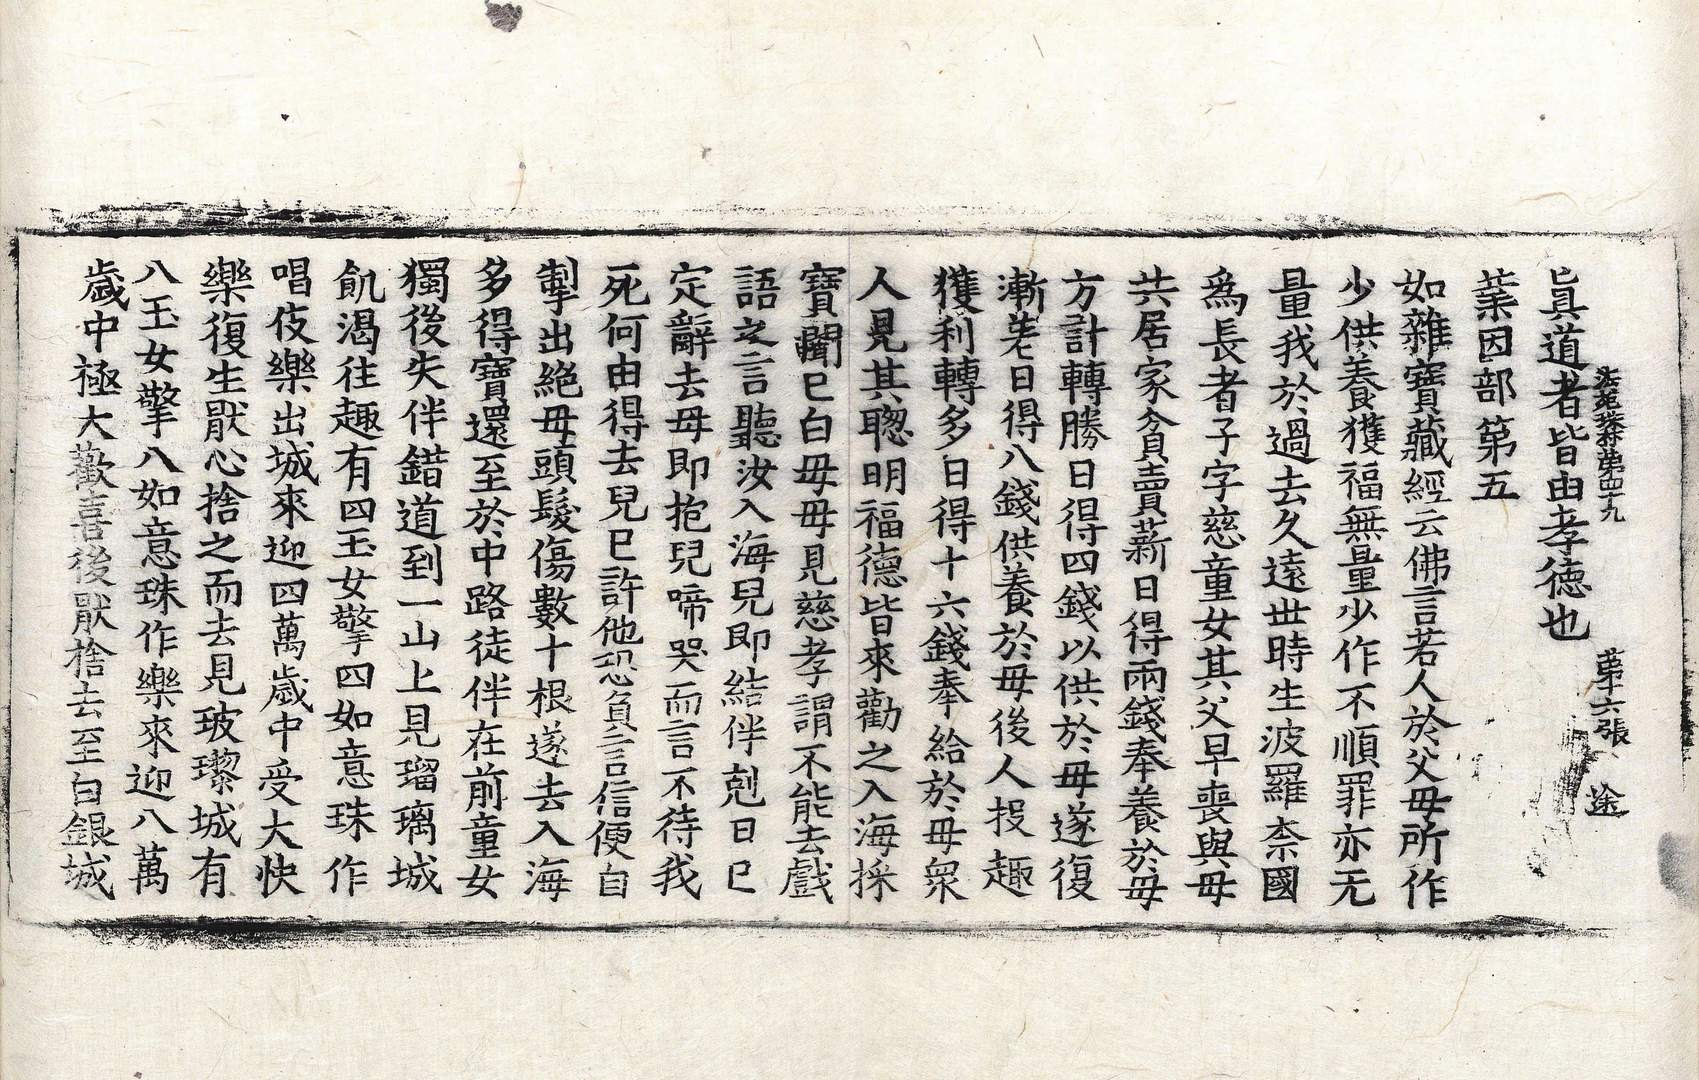 眞道者皆由孝德也
法苑珠林第四十九
第十六張
途
業因部第五
如雜寶藏經云佛言若人於父母所作
少供養獲福無量少作不順罪亦无
量我於過去久遠世時生波羅柰國
爲長者子字慈童女其父早喪與母
共居家貧賣薪日得兩錢奉養於母
方計轉勝日得四錢以供於母遂復
漸差日得八錢供養於母後人投趣
獲利轉多日得十六錢奉給於母衆
人見其聰明福德皆來勸之入海採
寶聞已白母母見慈孝謂不能去戲
語之言聽汝入海兒即結伴剋日已
定辭去母即抱兒啼哭而言不待我
死何由得去兒已許他恐負言信便自
掣出絶母頭髮傷數十根遂去入海
多得寶還至於中路徒伴在前童女
獨後失伴錯道到一山上見瑠璃城
飢渴往趣有四玉女擎四如意珠作
唱伎樂出城來迎四萬歲中受大快
樂復生猒心捨之而去見玻瓈城有
八玉女擎八如意珠作樂來迎八萬
歲中極大歡喜後猒捨去至白銀城